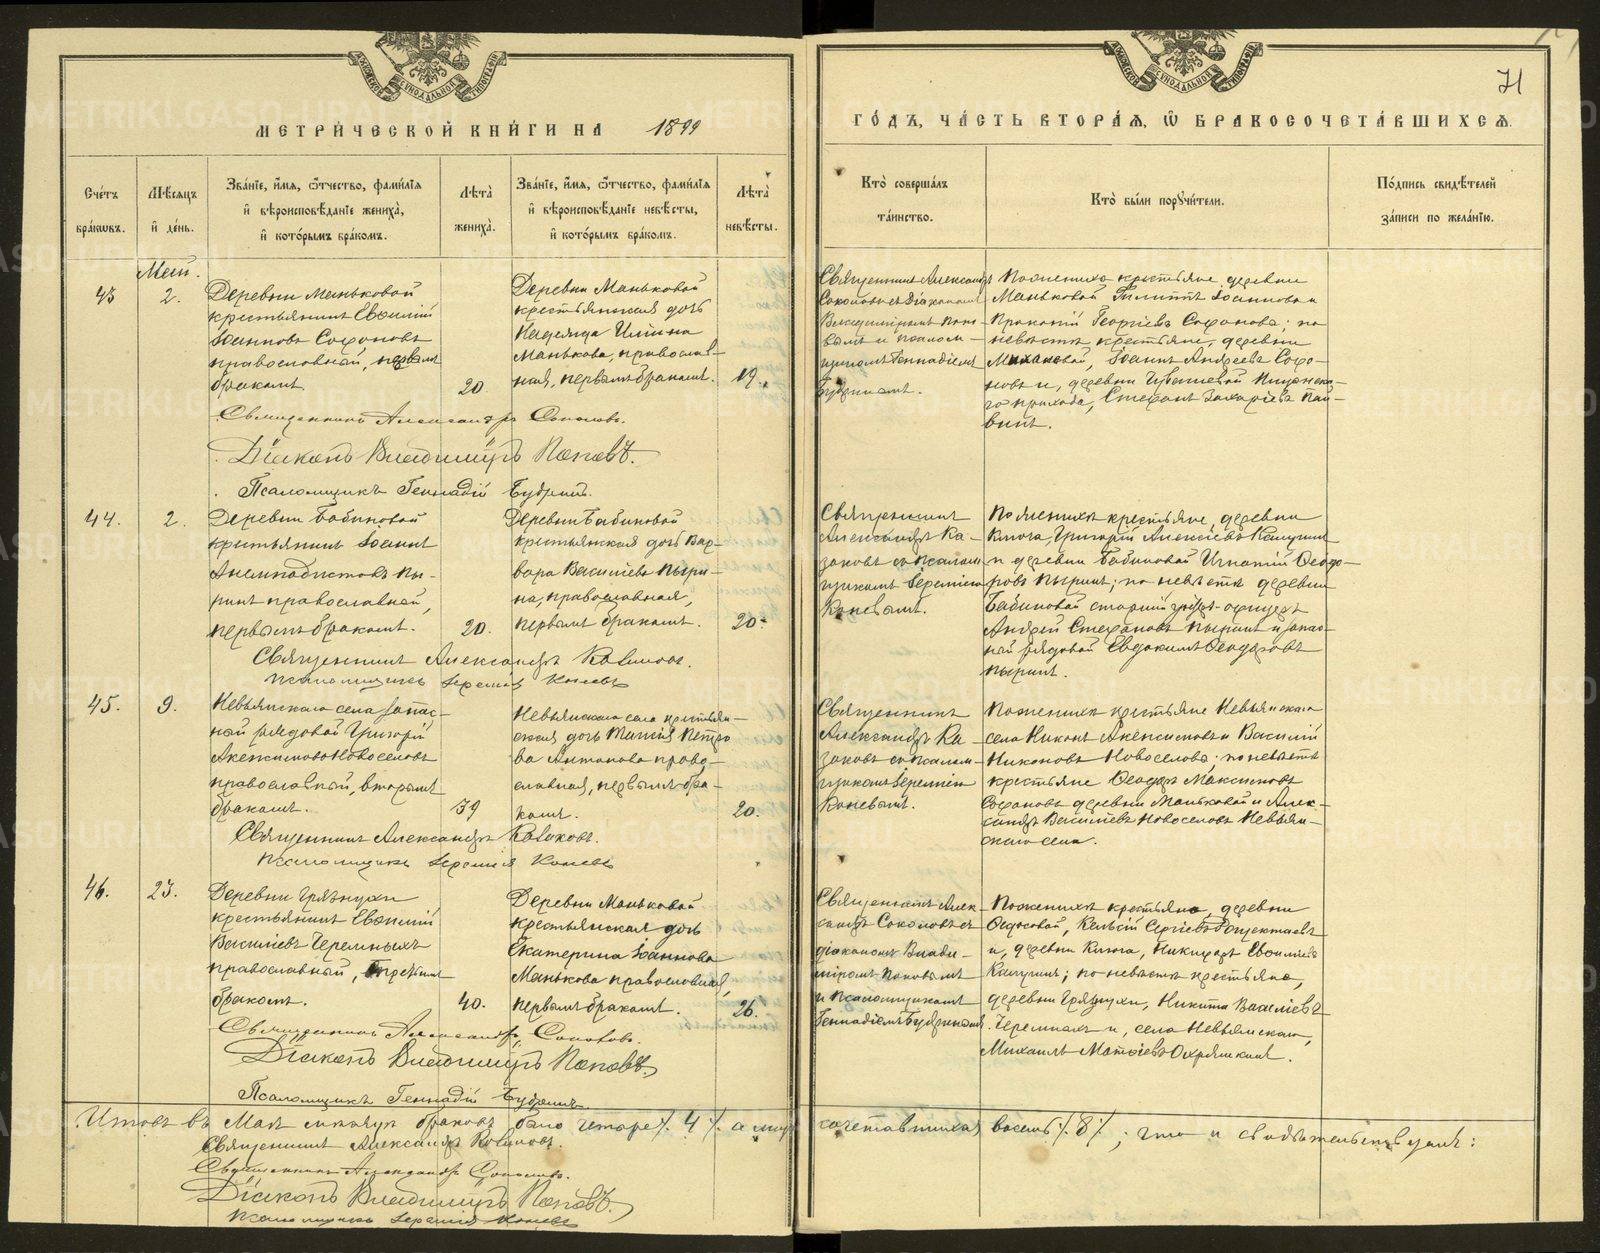 МЕТРИ́ЧЕСКОЙ КНИ́ГИ НА 1899
ГО́ДЪ, ЧА́СТЬ ВТОРА́Я, Ѿ БРАКОСОЧЕТА́ВШИХСЯ.
71
Сче́тъ бра́кѡвъ.
Мѣ́сяцъ и҆ де́нь.
Зва́нїе, и҆́мя, ѻ҆́тчество, фами́лїя
и҆ вѣроисповѣ́данїе жениха̀,
и҆ кото́рымъ бра́комъ.
Лѣта̀ жениха̀.
Зва́нїе, и҆́мя, ѻ҆́тчество, фами́лїя
и҆ вѣроисповѣ́данїе невѣ́сты,
и҆ кото́рымъ бра́комъ.
Лѣта̀ невѣ́сты.
Кто̀ соверша́лъ
та́инство.
Кто̀ бы́ли порꙋчи́тели.
По́дпись свидѣ́телей
за́писи по жела́нїю.
Май.
43
2.
Деревни Маньковой
крестьянинъ Евѳимій
Іоанновъ Софоновъ
православный, первымъ
бракомъ.
20
Деревни Маньковой
крестьянская дочь
Надежда Ильина
Манькова, православ-
ная, первымъ бракомъ.
19.
Священникъ Александръ
Соколовъ съ діакономъ
Владиміромъ Попо-
вымъ и псалом-
щикомъ Геннадіемъ
По женихѣ крестьяне деревни
Маньковой Филиппъ Іоанновъ и
Прокопій Георгіевъ Софоновы; по
невѣстѣ крестьяне, деревни
Маньковой, Іоаннъ Андреевъ Софо-
новъ и, деревни
го прихода, Стефанъ Захаріевъ Пай-
винъ.
Священникъ Александръ Соколовъ.
Діаконъ Владиміръ Поповъ.
Псаломщикъ Геннадій
44.
2.
Деревни Бабиновой
крестьянинъ Іоаннъ
Анемподистовъ Пы-
ринъ православный,
первымъ бракомъ.
20.
Деревни Бабиновой
крестьянская дочь Вар-
вара Васильева Пыри-
на, православная,
первымъ бракомъ.
20.
Священникъ
Александръ Ка-
заковъ съ псалом-
щикомъ Іереміею
Коневымъ.
По женихѣ крестьяне, деревни
Ключа, Григорій Алексіевъ Калугинъ
и деревни Бабиновой Игнатій Ѳеодо-
ровъ Пыринъ; по невѣстѣ деревни
Бабиновой старшій унтеръ-офицеръ
Андрей Стефановъ Пыринъ и запас-
ный рядовой Евдокимъ Ѳеодоровъ
Пыринъ.
Священникъ Александръ Казаковъ.
Псаломщикъ Іеремія Коневъ
45.
9.
Невьянскаго села запас-
ный рядовой Григорій
Акепсимовъ Новоселовъ
православный, вторымъ
бракомъ.
39
Невьянскаго села крестьян-
ская дочь Таисія Петро
ва Антонова право-
славная, первымъ бра-
комъ.
20.
Священникъ
Александръ Ка-
заковъ съ псалом-
щикомъ Іереміею
Коневымъ.
По женихѣ крестьяне Невьянскаго
села Никонъ Акепсимовъ и Василій
Никоновъ Новоселовы; по невѣстѣ
крестьяне Ѳеодоръ Максимовъ
Софоновъ деревни Маньковой и Алек-
сандръ Васильевъ Новоселовъ Невьян-
скаго села.
Священникъ Александръ Казаковъ.
Псаломщикъ Іеремія Коневъ
46.
23.
Деревни Грязнухи
крестьянинъ Евѳимій
Васильевъ Черемныхъ
православный, третьимъ
бракомъ.
40.
Деревни Маньковой
крестьянская дочь
Екатерина Іоаннова
Манькова православная,
первымъ бракомъ.
26.
Священникъ Алек-
сандръ Соколовъ съ
діакономъ Влади-
міромъ Поповымъ
и псаломщикомъ
Геннадіемъ
По женихѣ крестьяне, деревни
Ѳедосовой, Сергіевъ
и, деревни Ключа, Никифоръ Евѳиміевъ
Калугинъ; по невѣстѣ крестьяне,
деревни Грязнухи, Никита Васильевъ
Черемныхъ и, села Невьянскаго,
Михаилъ Матѳіевъ
Священникъ Александръ Соколовъ.
Діаконъ Владиміръ Поповъ.
Псаломщикъ Геннадій
Итого въ Маѣ мѣсяцѣ браковъ было четыре ٪ 4 ٪ а лицъ сочетавшихся восемь ٪ 8 ٪; что и свидѣтельствуемъ:
Священникъ Александръ Казаковъ.
Священникъ Александръ Соколовъ.
Діаконъ Владиміръ Поповъ.
Псаломщикъ Іеремія Коневъ